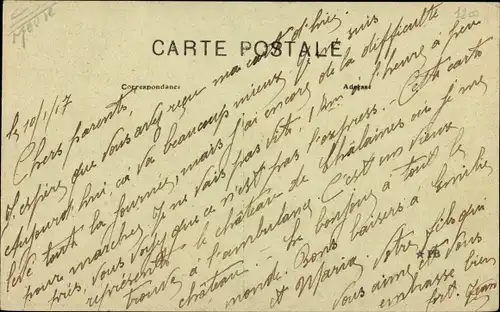 CARTE POSTALE
Correspondance
Adresse
le 10/1/17
Chers parents,
J'espère que vous avez reçu ma carte d'hier.
Aujourd'hui, ça va beaucoup mieux. Je me suis
levé toute la journée, mais j'ai encore de la difficulté
pour marcher. Je ne vais pas vite, 1 km à l'heure à peu
près, vous voyez que ce n'est pas l'express. Cette carte
représente le château de Chälaines où je me
trouve à l'ambulance. C'est un vieux
château. Le bonjour à tout le
monde. Bons baisers à Emilie
et Maria. Votre fils qui
vous aime et vous
embrasse bien
fort.